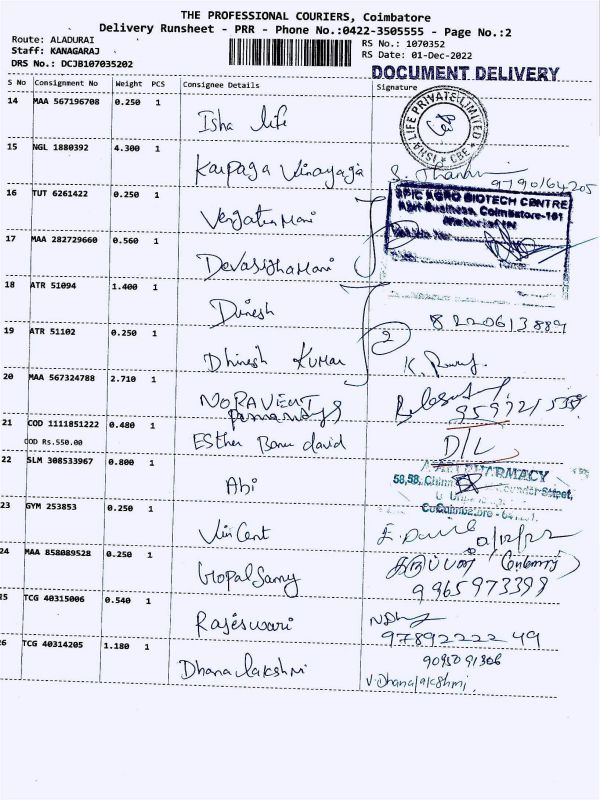 THE PROFESSIONAL COURIERS, Coimbatore
Delivery Runsheet - PRR - Phone No.:0422-3505555 - Page No.:2
Route: ALADURAI
RS No.: 1070352
Staff: KANAGARAJ
RS Date: 01-Dec-2022
DRS No.: DCJB107035202
DOCUMENT DELIVERY
S No Consignment No Weight PCS Consignee Details Signature
14 MAA 567196708 0.250 1
Isha life
ISHA LIFE PRIVATE LIMITED CBE
15 NGL 1880392 4.300 1
Karpaga Vinayaga
9790164205
16 TUT 6261422 0.250 1
SPIC AGRO BIOTECH CENTRE
Agri-Business, Coimbatore-101
17 MAA 282729660 0.560 1
18 ATR 51094 1.400 1
Dinesh
8220613889
19 ATR 51102 0.250 1
Dhinesh Kumar
2
20 MAA 567324788 2.710 1
21 COD 1111851222 0.480 1
COD Rs.550.00
Esther Banu david
D/L
22 SLM 308533967 0.800 1
Abi
PHARMACY
23 GYM 253853 0.250 1
Vincent
2/12/22
24 MAA 858089528 0.250 1
Gopal Samy
9965973398
25 TCG 40315006 0.540 1
Rajeswari
9789222249
26 TCG 40314205 1.180 1
Dhanalakshmi
9095091306
V. Dhanalakshmi